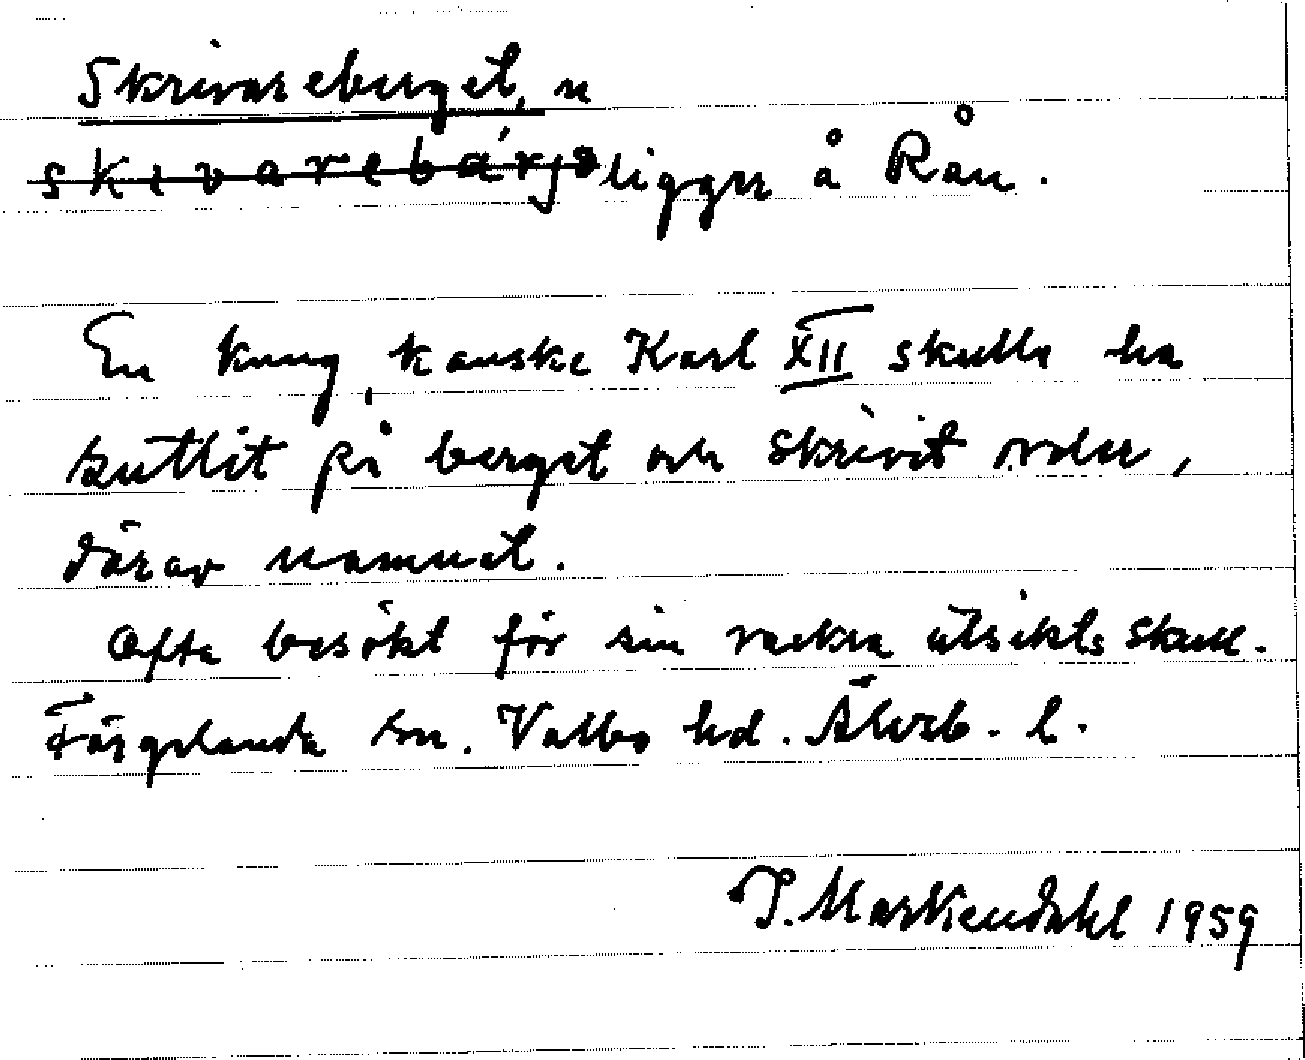 Skrivareberget, n
skivarebärjə ligger å Rån.
En kung, kanske Karl XII skulle ha
suttit på berget och skrivit order,
därav namnet.
Ofta besökt för sin vackra utsikts skull.
Färgelanda sn. Valbo hd. Älvsb. l.
J. Markendahl 1959